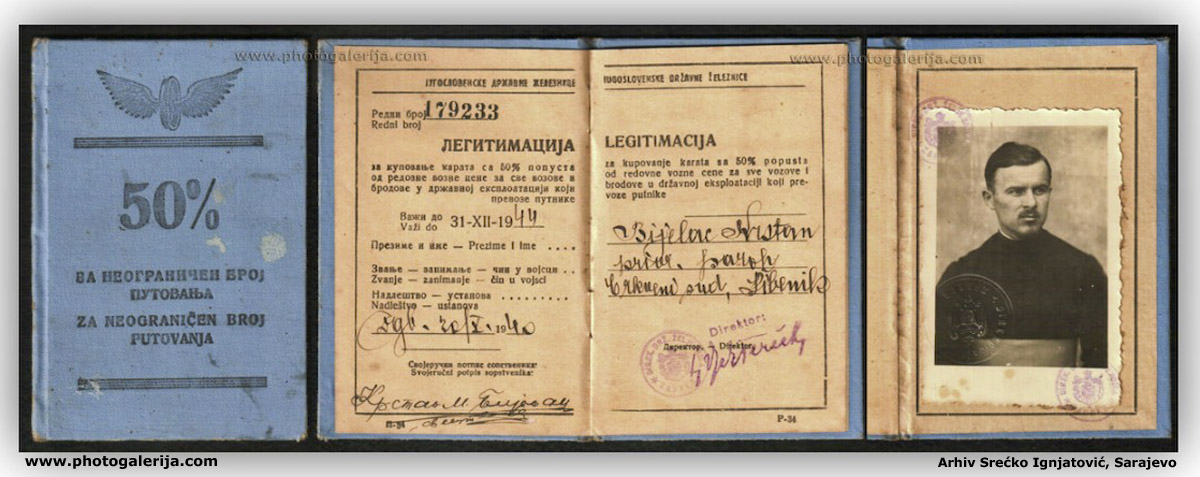 www.photogalerija.com
50%
ЗА НЕОГРАНИЧЕН БРОЈ
ПУТОВАЊА
ZA NEOGRANIČEN BROJ
PUTOVANJA
ЈУГОСЛОВЕНСКЕ ДРЖАВНЕ ЖЕЛЕЗНИЦЕ
Редни број 179233
Redni broj
ЛЕГИТИМАЦИЈА
за куповање карата са 50% попуста
од редовне возне цене за све возове и
бродове у државној експлоатацији који
превозе путнике
Важи до
Važi do 31-XII-1944
Презиме и име — Prezime i ime ....
Звање — занимање — чин у војсци ..
Zvanje — zanimanje — čin u vojsci
Надлештво — установа
Nadleštvo — ustanova
Zgb. 20/X 1940
Својеручни потпис сопственика:
Svojeručni potpis sopstvenika:
Крстан М. Бијелац
П-34
JUGOSLOVENSKE DRŽAVNE ŽELEZNICE
LEGITIMACIJA
za kupovanje karata sa 50% popusta
od redovne vozne cene za sve vozove i
brodove u državnoj eksploataciji koji pre-
voze putnike
Bijelac Krstan
prav. paroh
Crkveni sud, Šibenik
Direktor:
Директор, — Direktor,
P-34
www.photogalerija.com
www.photogalerija.com
Arhiv Srećko Ignjatović, Sarajevo